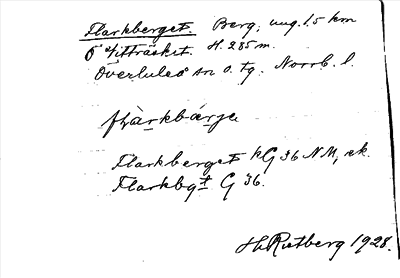 Flarkberget. Berg, ung. 1.5 km
O Vitträsket. H. 285 m.
Överluleå sn o. tg. Norrb. l.
flàrkbärje
Flarkberget kG 36 NM, ek.
Flarkbgt G 36.
H. Rutberg 1928.